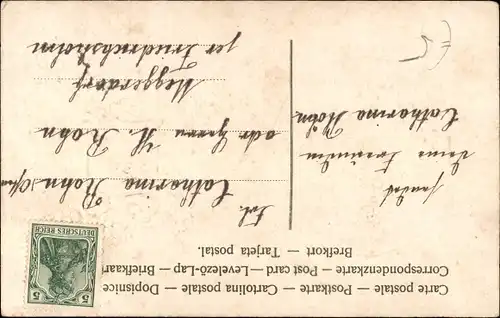 Carte postale — Postkarte — Cartolina postale — Dopisnice
Correspondenzkarte — Post card — Levelező-Lap — Briefkaart
Brefkort — Tarjeta postal.
DEUTSCHES REICH
5 5
Frl.
Catharina Rohn
adr Herrn H. Rohn
Meggerdorf
per Friedrichsholm
sendet
Deine Freundin
Catharina